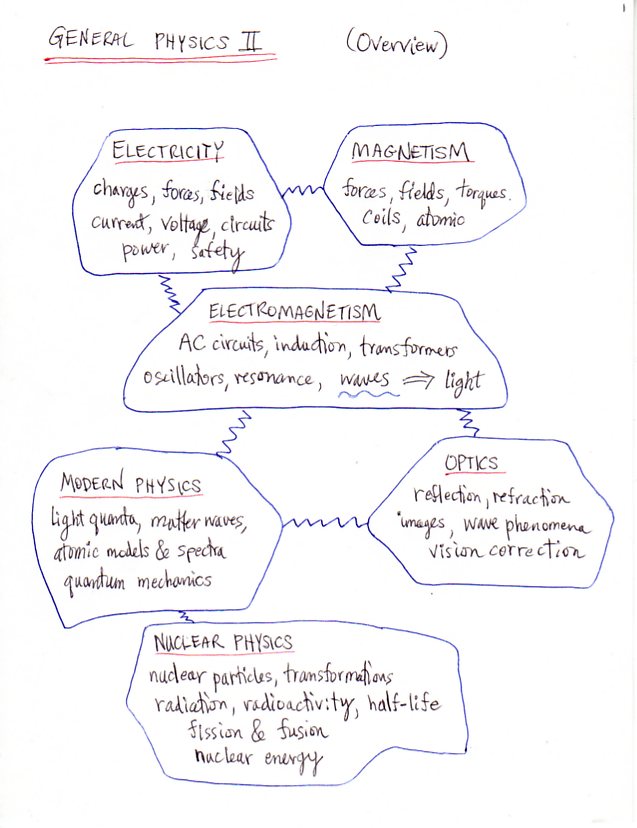 GENERAL PHYSICS II (Overview)
ELECTRICITY
charges, forces, fields
current, voltage, circuits
power, safety
MAGNETISM
forces, fields, torques.
coils, atomic
ELECTROMAGNETISM
AC circuits, induction, transformers
oscillators, resonance, waves ⇒ light
MODERN PHYSICS
light quanta, matter waves,
atomic models & spectra
quantum mechanics
OPTICS
reflection, refraction
images, wave phenomena
vision correction
NUCLEAR PHYSICS
nuclear particles, transformations
radiation, radioactivity, half-life
fission & fusion
nuclear energy